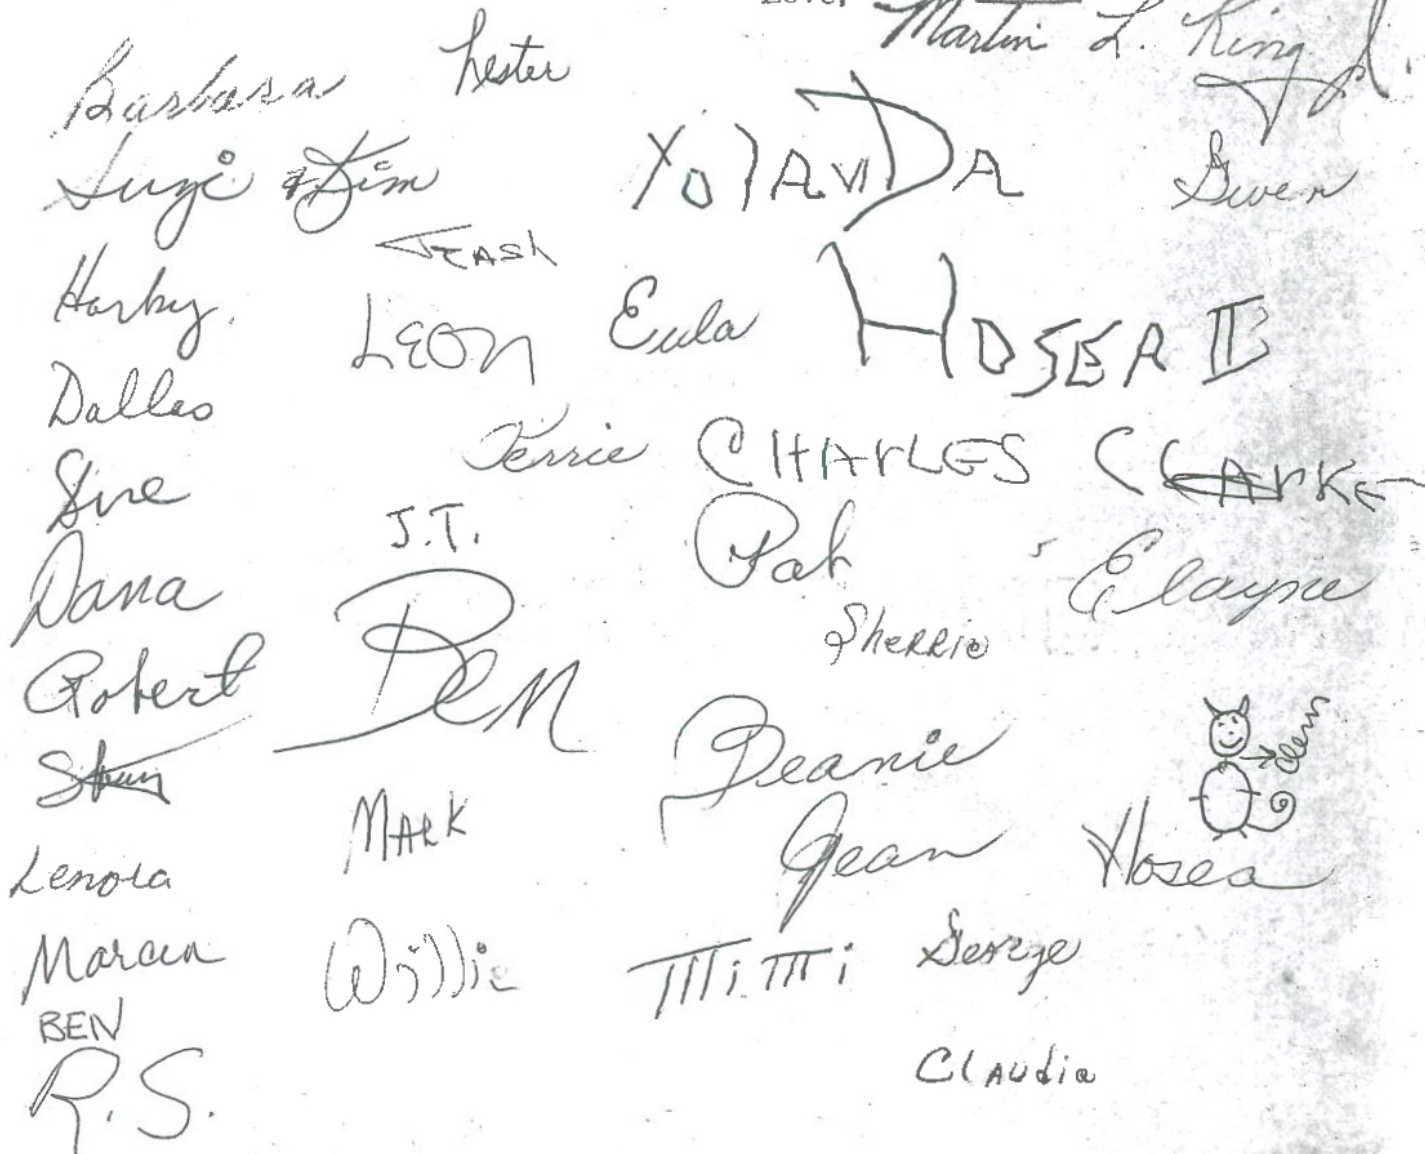 Love,
Martin L. King Jr.
Barbara Lester
Suzi & Kim YolANDA Gwen
Harby.
LEON Eula HOSEA II
Dallas
Terrie CHArLES CLArKE
Sue
J.T. Pat Elayne
Dana
Sherrie
Robert Ben
Beanie Clem
MARK
Lenora Jean Hosea
Willie Mimi George
BEN
Claudia
R.S.